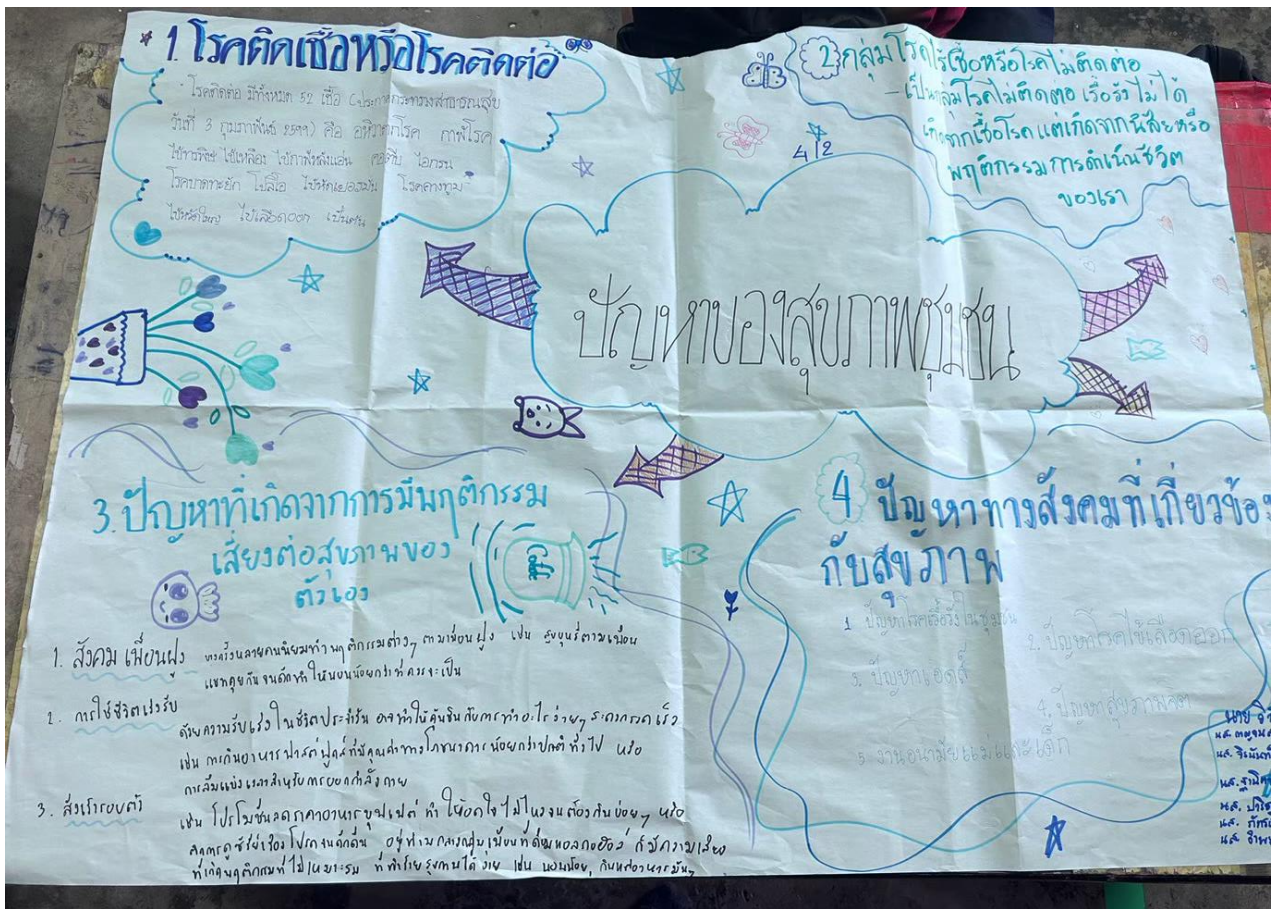 1. โรคติดเชื้อหรือโรคติดต่อ
โรคติดต่อ มีทั้งหมด 52 เชื้อ (ประกาศกระทรวงสาธารณสุข
วันที่ 3 กุมภาพันธ์ คือ อหิวาตกโรค กาฬโรค
ไข้ทรพิษ ไข้เหลือง ไข้กาฬหลังแอ่น คอตีบ ไอกรน
โรคบาดทะยัก โปลิโอ ไข้หัดเยอรมัน โรคคางทูม
ไข้หวัดใหญ่ ไข้เลือดออก เป็นต้น
2 กลุ่มโรคไร้เชื้อหรือโรคไม่ติดต่อ
- เป็นกลุ่มโรคไม่ติดต่อ เรื้อรังไม่ได้
เกิดจากเชื้อโรค แต่เกิดจากนิสัยหรือ
พฤติกรรมการดำเนินชีวิต
ของเรา
4/2
ปัญหาของสุขภาพชุมชน
3. ปัญหาที่เกิดจากการมีพฤติกรรม
เสี่ยงต่อสุขภาพของ
ตัวเอง
1. สังคม เพื่อนฝูง บางครั้งหลายคนนิยมทำพฤติกรรมต่างๆ ตามเพื่อนฝูง เช่น สูบบุหรี่ตามเพื่อน
แชทคุยกันจนดึกทำให้นอนน้อยกว่าที่ควรจะเป็น
2. การใช้ชีวิตเร่งรีบ
ด้วยความรีบเร่งในชีวิตประจำวัน อาจทำให้คุ้นชินกับการทำอะไรง่ายๆ สะดวกรวดเร็ว
เช่น การกินอาหารฟาสต์ฟู้ดส์ที่มีคุณค่าทางโภชนาการน้อยกว่าปกติทั่วไป หรือ
การลืมแบ่งเวลาสำหรับการออกกำลังกาย
3. สิ่งเร้ารอบตัว
เช่น โปรโมชั่นลดราคาอาหารบุฟเฟต์ ทำให้อดใจไม่ไหวจนต้องกินบ่อยๆ หรือ
ซีรีย์เรื่องโปรดจนดึกดื่น อยู่ท่ามกลางกลุ่มเพื่อนที่ดื่มแอลกอฮอล์ ก็มีความเสี่ยง
ที่เกิดพฤติกรรมที่ไม่เหมาะสม ที่ทำร้ายสุขภาพได้ง่าย เช่น นอนน้อย, กินแต่อาหารมันๆ
4 ปัญหาทางสังคมที่เกี่ยวข้อง
กับสุขภาพ
1. ปัญหาโรคเรื้อรังในชุมชน
2. ปัญหาโรคไข้เลือดออก
3. ปัญหาเอดส์
4. ปัญหาสุขภาพจิต
5. งานอนามัยแม่และเด็ก
นาย
นส.
นส.
นส.
นส.
นส.
นส.